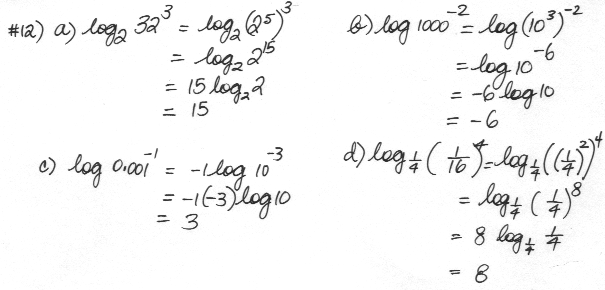 #12) a) log₂ 32³ = log₂(2⁵)³
= log₂ 2¹⁵
= 15 log₂ 2
= 15
b) log 1000⁻² = log(10³)⁻²
= log 10⁻⁶
= -6 log 10
= -6
c) log 0.001⁻¹ = -1 log 10⁻³
= -1(-3) log 10
= 3
d) log_{1/4} (1/16)⁴ = log_{1/4} ((1/4)²)⁴
= log_{1/4} (1/4)⁸
= 8 log_{1/4} 1/4
= 8